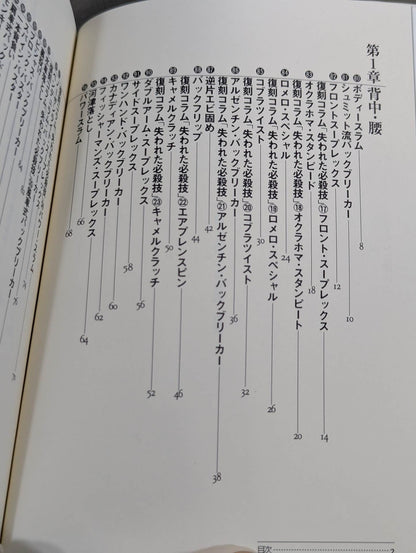 第1章 背中・腰
80 ボディースラム 8
81 シュミット流バックブリーカー 10
82 フロントスープレックス 12
復刻コラム「失われた必殺技」⑰フロント・スープレックス 14
83 オクラホマ・スタンピード 18
復刻コラム「失われた必殺技」⑱オクラホマ・スタンピート 20
84 ロメロ・スペシャル 24
復刻コラム「失われた必殺技」⑲ロメロ・スペシャル 26
85 コブラツイスト 30
復刻コラム「失われた必殺技」⑳コブラツイスト 32
86 アルゼンチン・バックブリーカー 36
復刻コラム「失われた必殺技」㉑アルゼンチン・バックブリーカー 38
87 逆片エビ固め 42
88 バックフリップ 44
復刻コラム「失われた必殺技」㉒エアプレンスピン 46
89 キャメルクラッチ 50
復刻コラム「失われた必殺技」㉓キャメルクラッチ 52
90 ダブルアーム・スープレックス
91 サイドスープレックス 56
92 ワンハンド・バックブリーカー 58
93 カナディアン・バックブリーカー 60
94 フィッシャーマンズ・スープレックス 62
95 河津落とし 64
96 パワースラム 66
68
目次 2